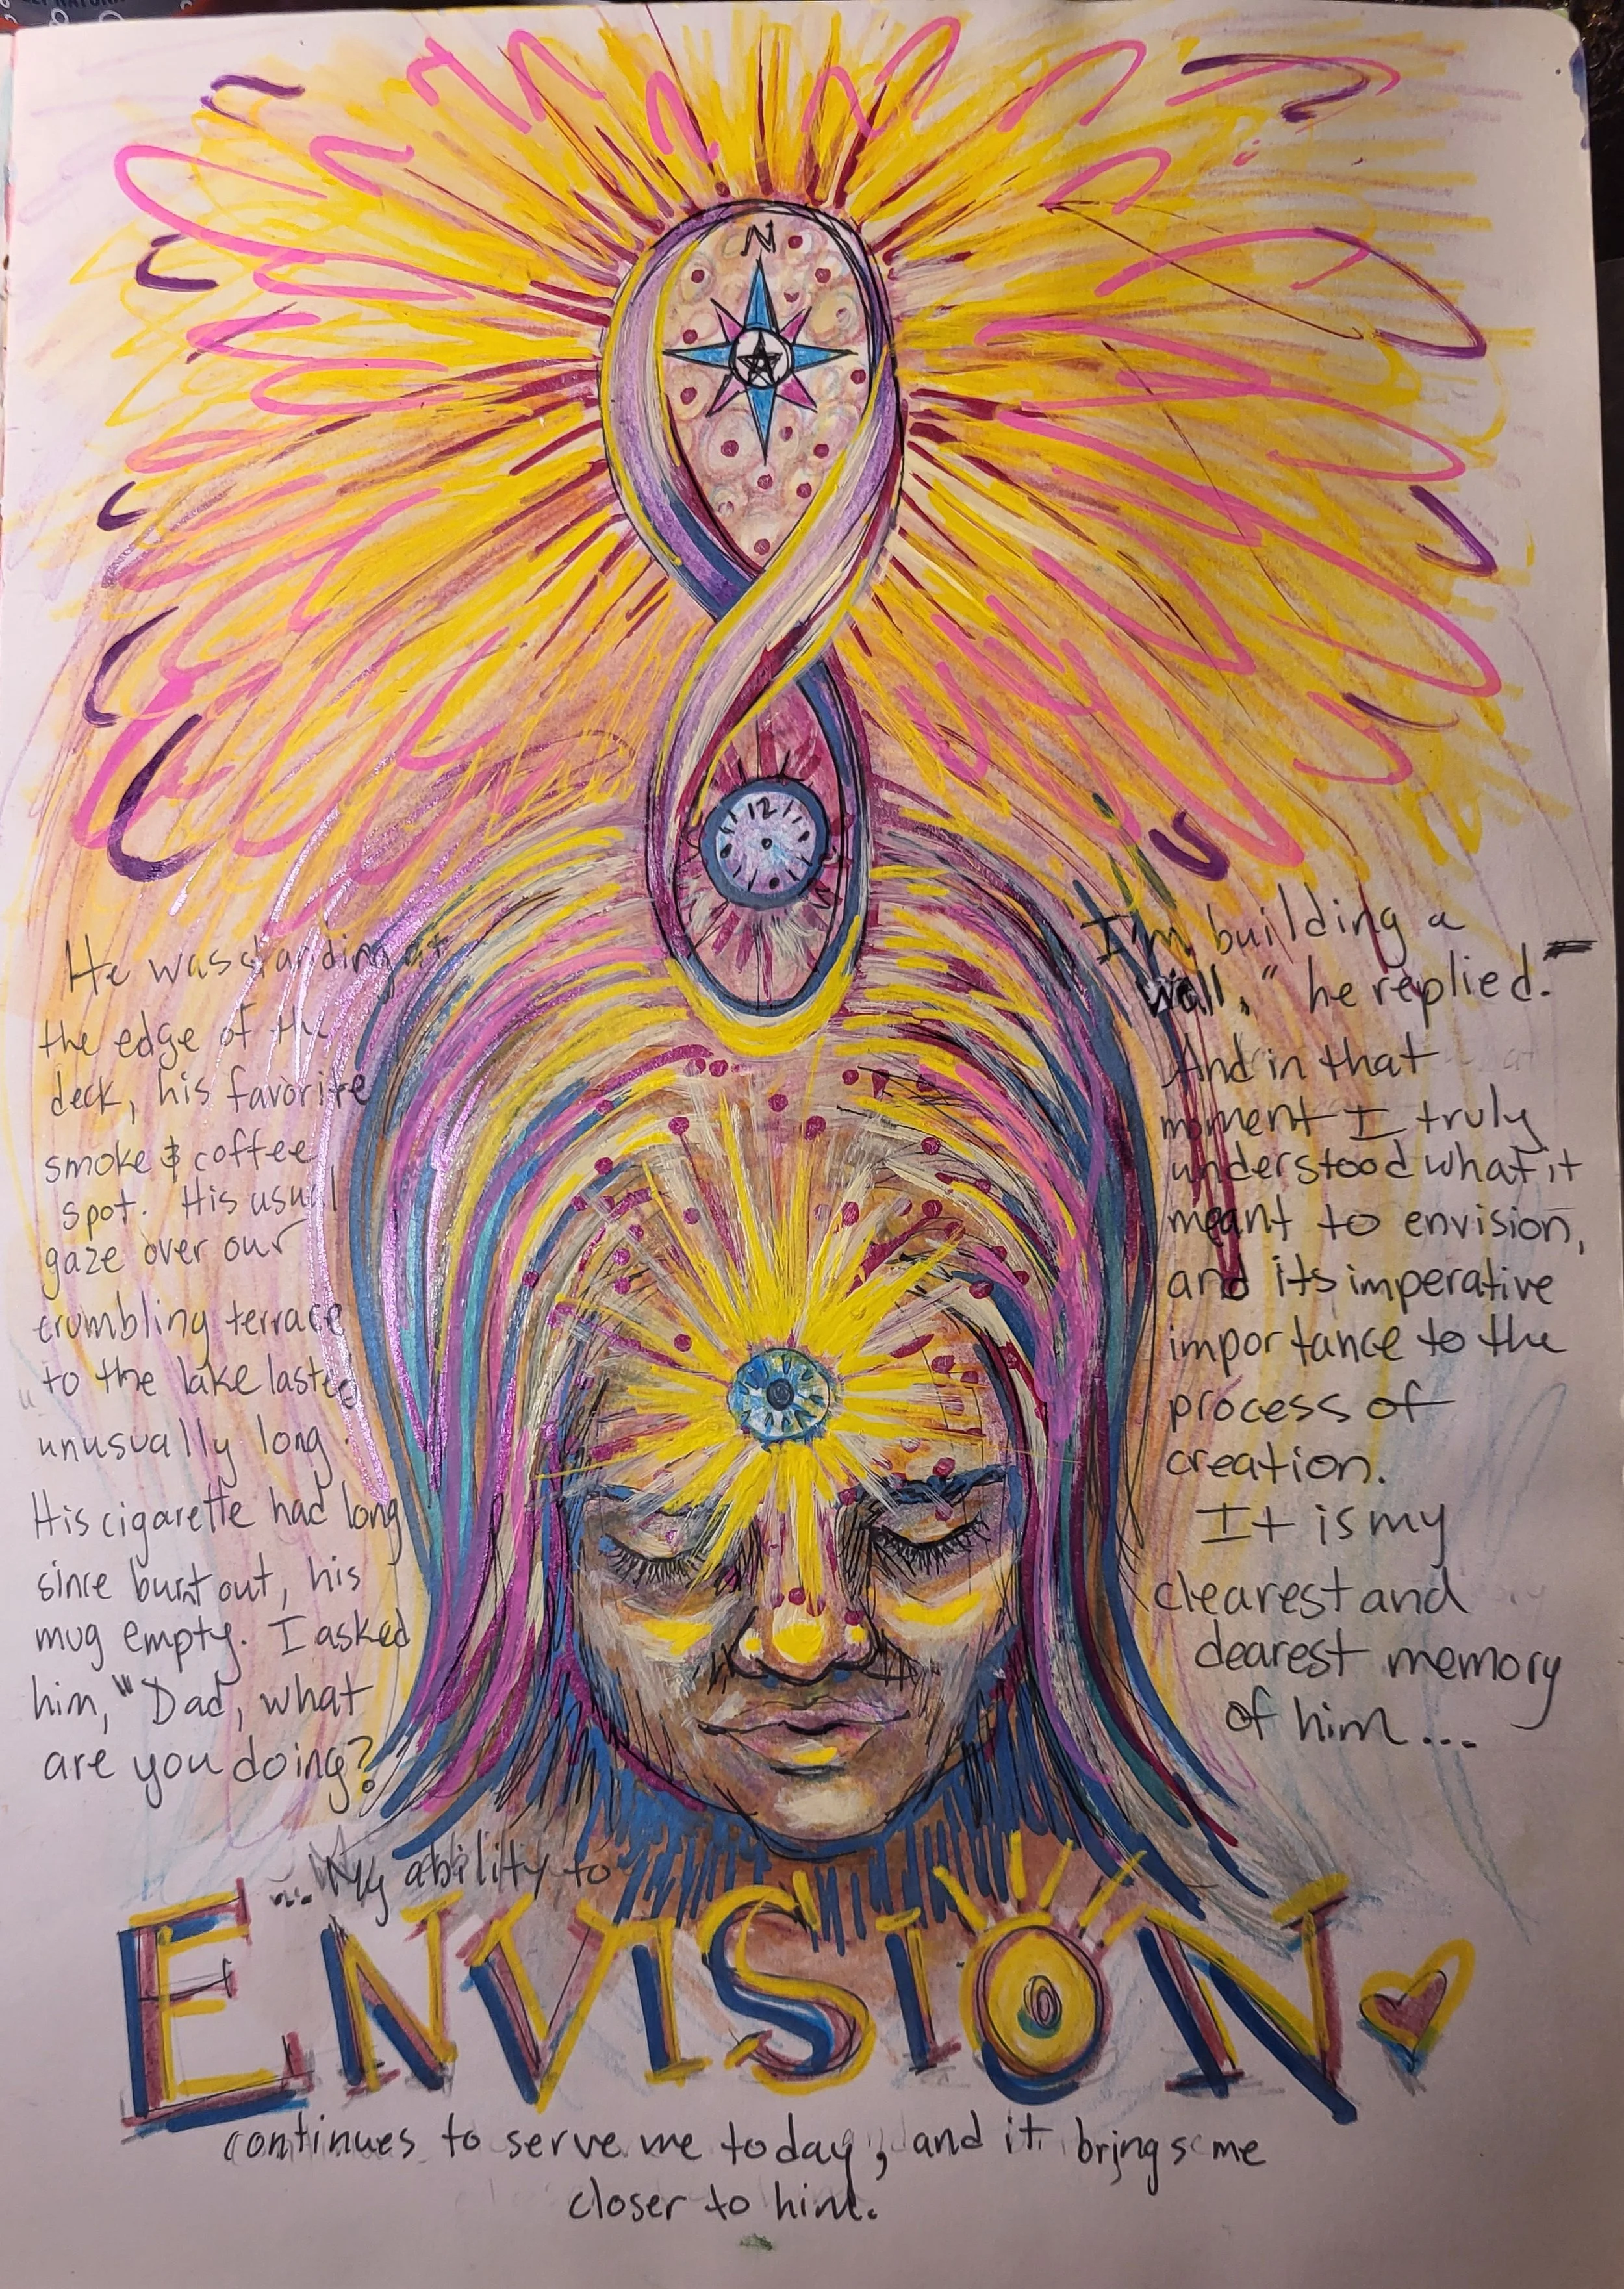 N
12
He was standing at
the edge of the
deck, his favorite
smoke & coffee
spot. His usual
gaze over our
crumbling terrace
to the lake lasted
unusually long.
His cigarette had long
since burnt out, his
mug empty. I asked
him, "Dad, what
are you doing?
I'm building a
wall," he replied.
And in that
moment I truly
understood what it
meant to envision,
and its imperative
importance to the
process of
creation.
It is my
clearest and
dearest memory
of him...
... My ability to
ENVISION
continues to serve me today, and it brings me
closer to him.